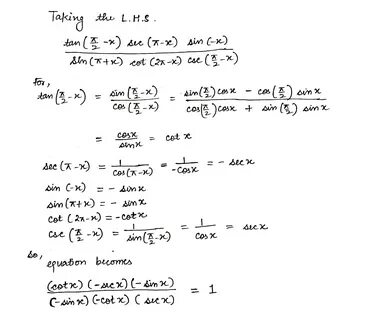 Taking the L.H.S.
tan(π/2 - x) sec(π-x) sin(-x)
sin(π+x) cot(2π-x) csc(π/2 - x)
for,
tan(π/2 - x) = sin(π/2 - x) / cos(π/2 - x) = sin(π/2)cosx - cos(π/2) sinx / cos(π/2)cosx + sin(π/2) sinx
= cosx / sinx = cotx
sec(π-x) = 1 / cos(π-x) = 1 / -cosx = - secx
sin(-x) = - sinx
sin(π+x) = - sinx
cot(2π-x) = -cotx
csc(π/2 - x) = 1 / sin(π/2 - x) = 1 / cosx = secx
so,
equation becomes
(cotx)(-secx)(-sinx) / (-sinx)(-cotx)(secx) = 1